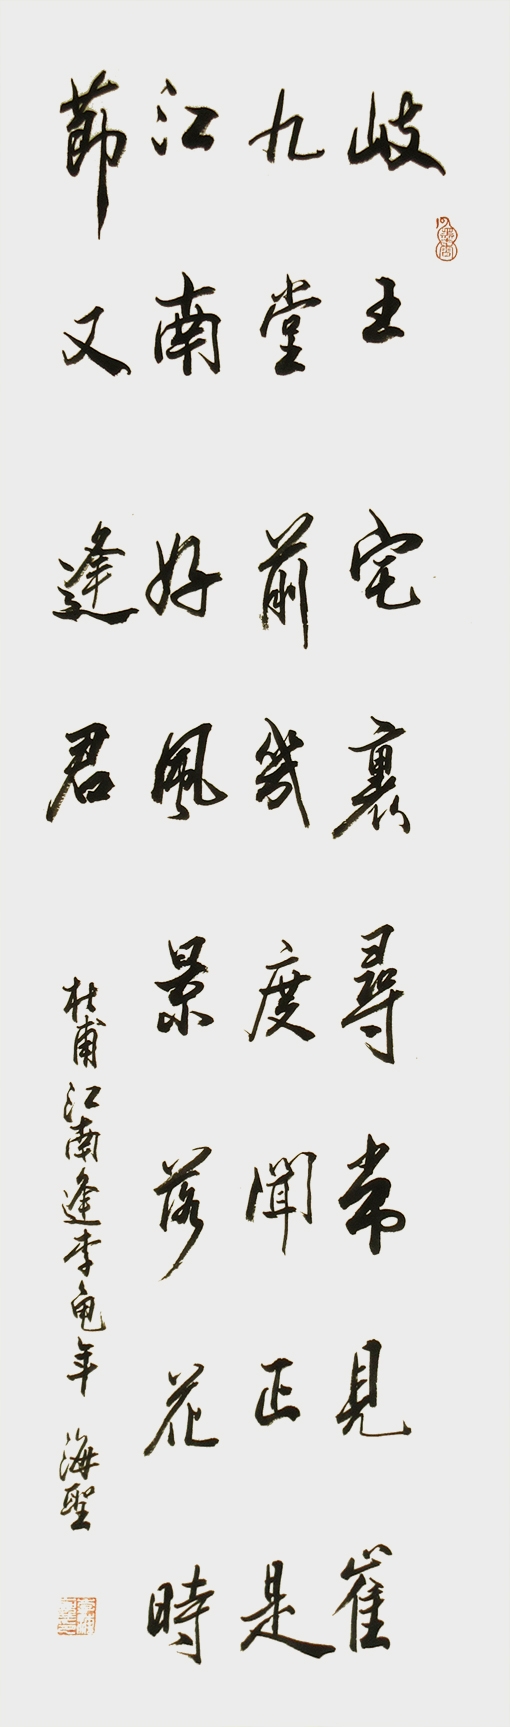 歧王宅裏尋常見崔
九堂前幾度聞正是
江南好風景落花時
節又逢君
杜甫江南逢李龟年 海聖